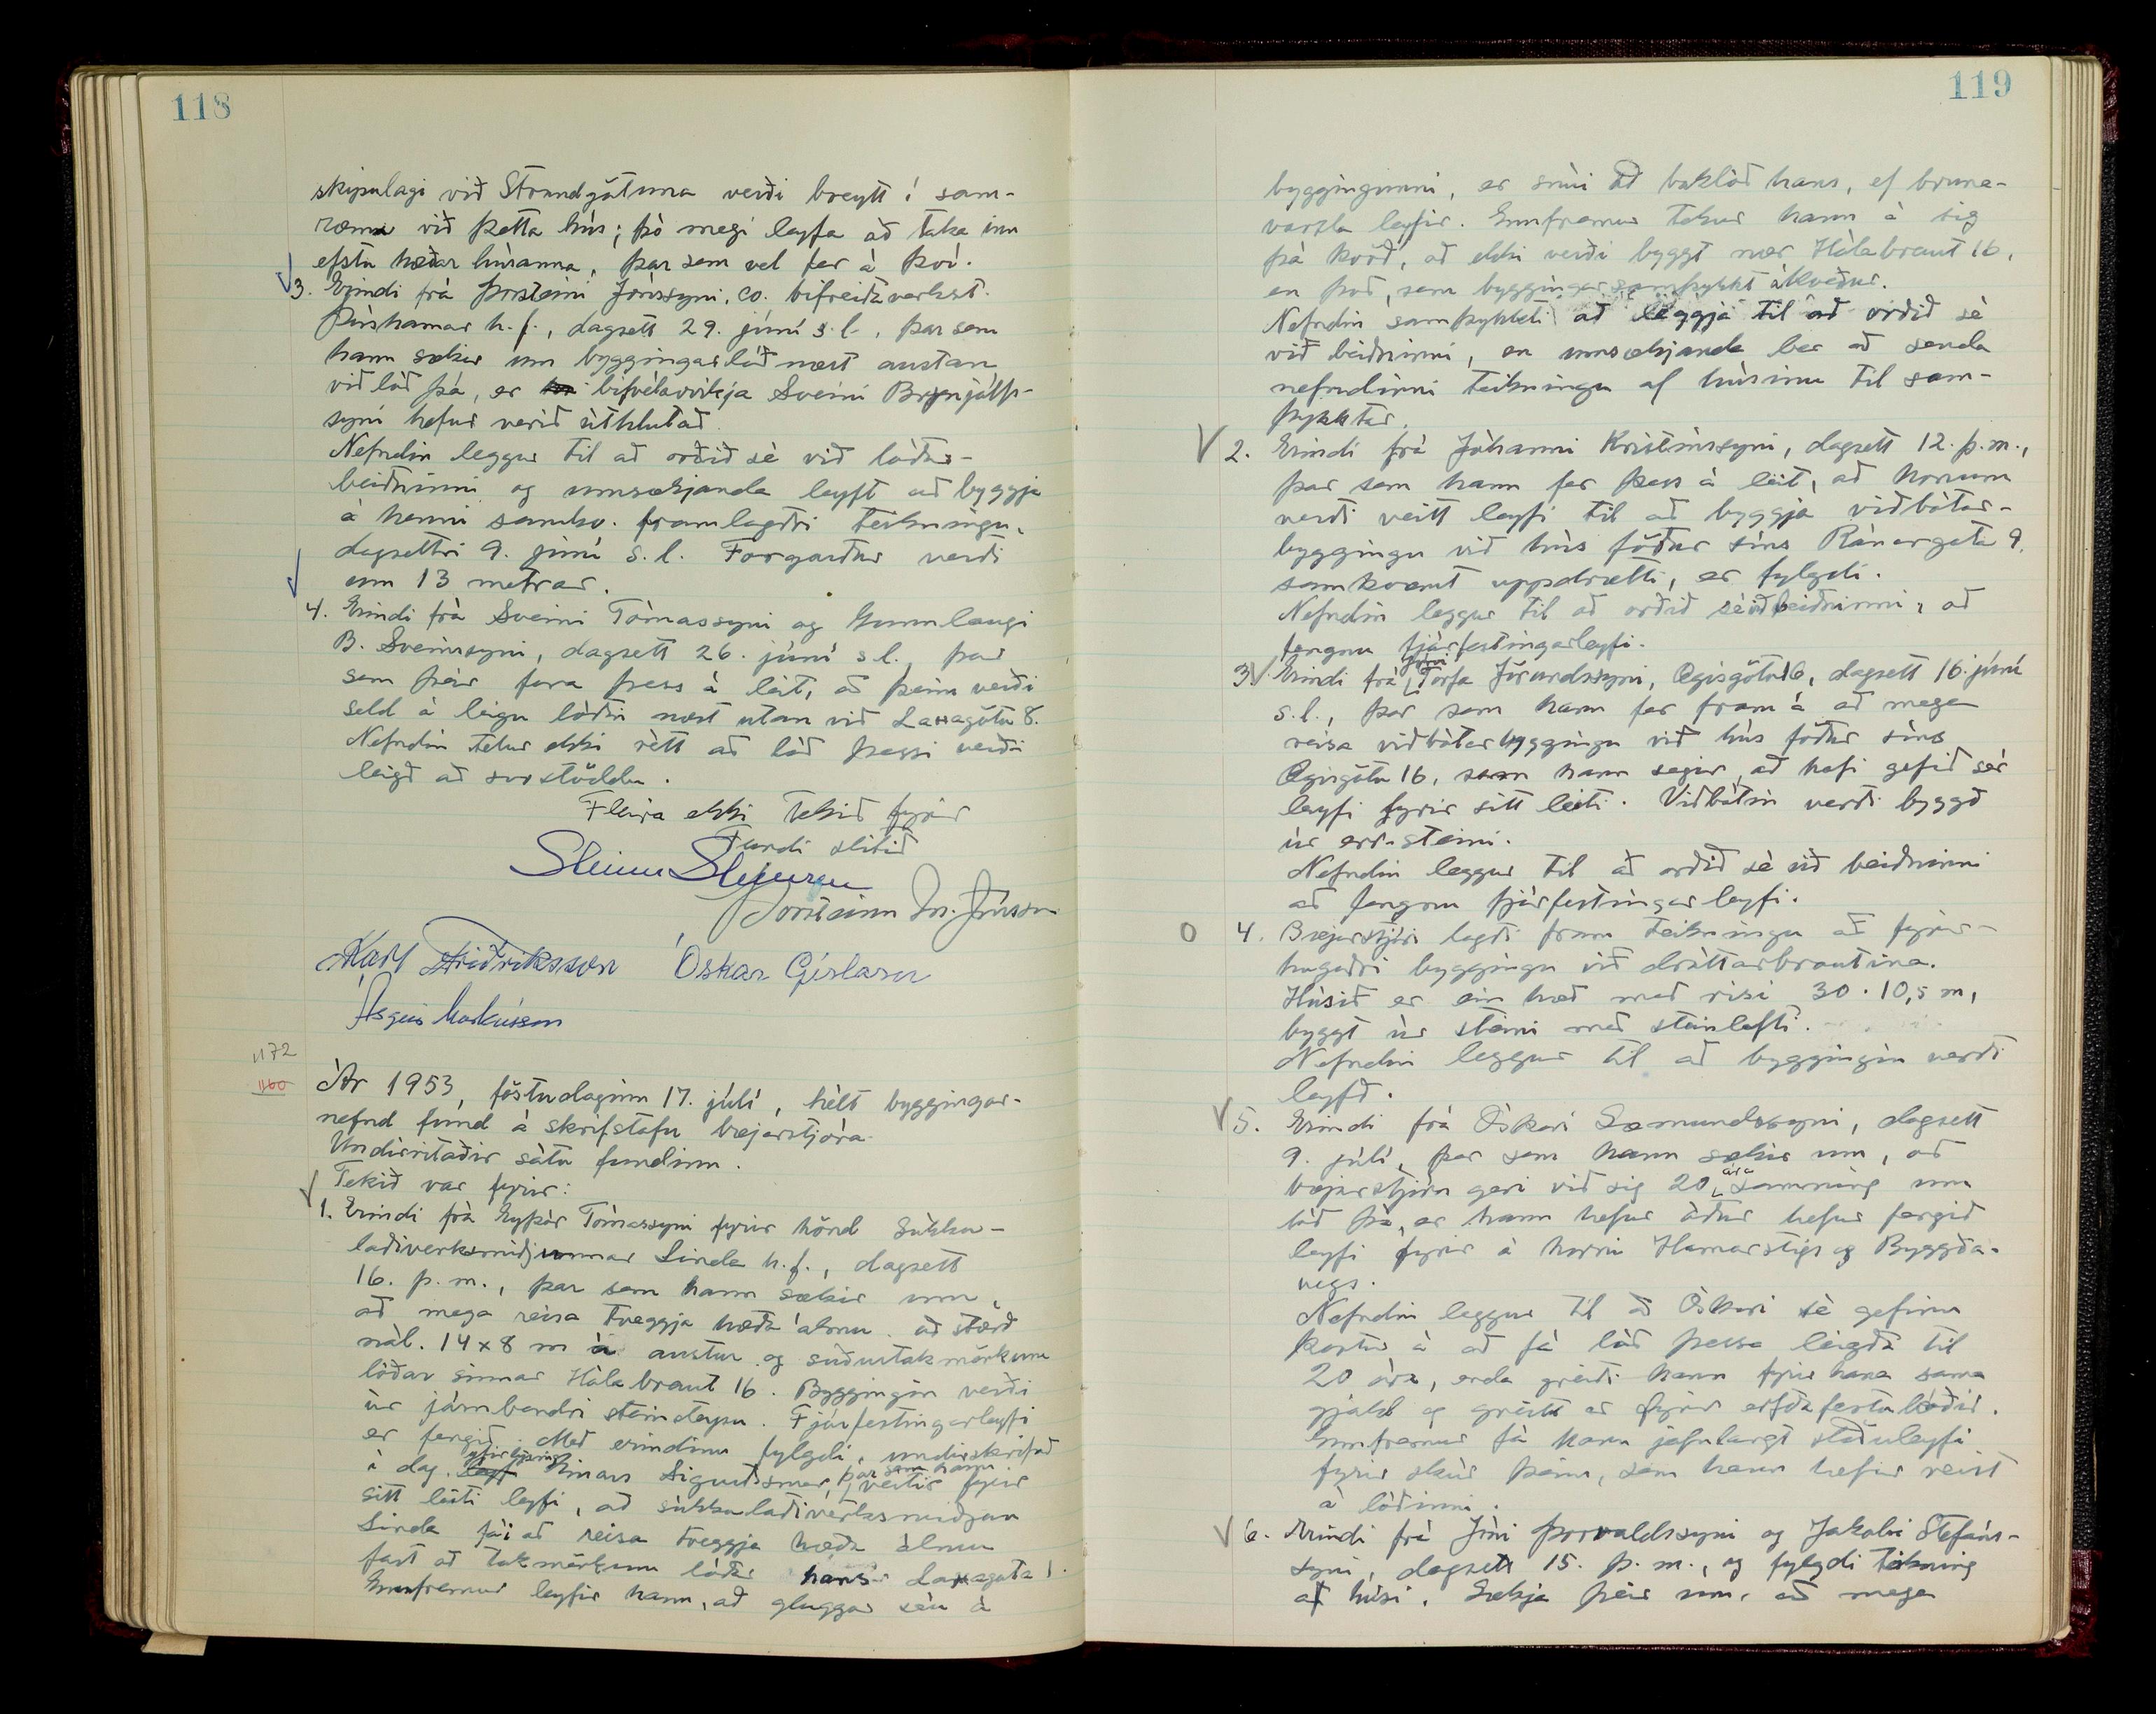 118
skipulagi við Strandgötuna verði breytt í sam-
ræmi við þetta hús; þó megi leyfa að taka inn
efstu hæðar húsanna, þar sem vel fer á því.
3. Erindi frá Þorsteini Jónssyni, co. bifreiðaverkst.
Þórshamar h.f., dagsett 29. júní s.l., þar sem
hann sækir um byggingarlóð næst austan
við lóð þá, er bifvélavirkja Sveini Brynjólfs-
syni hefur verið úthlutað.
Nefndin leggur til að orðið sé við lóðar-
beiðninni og umsækjanda leyft að byggja
á henni samkv. framlagðri teikningu,
dagsettri 9. júní s.l. Forgarður verði
um 13 metrar.
4. Erindi frá Sveini Tómassyni og Gunnlaugi
B. Sveinssyni, dagsett 26. júní s.l., þar
sem þeir fara þess á leit, að þeim verði
seld á leigu lóðin næst utan við Laxagötu 8.
Nefndin telur ekki rétt að lóð þessi verði
leigð að svo stöddu.
Fleira ekki tekið fyrir
Fundi slitið
Steinn Steinsen
Þorsteinn Jónsson
Karl Friðriksson Óskar Gíslason
Ásgeir Markússon
1172
1160
Ár 1953, föstudaginn 17. júlí, hélt byggingar-
nefnd fund á skrifstofu bæjarstjóra.
Undirritaðir sátu fundinn.
Tekið var fyrir:
1. Erindi frá Eyþór Tómassyni fyrir hönd Súkku-
laðiverksmiðjunnar Linda h.f., dagsett
16. þ.m., þar sem hann sækir um,
að mega reisa tveggja hæða álmu að stærð
nál. 14 x 8 m á austur og suðurtakmörkum
lóðar sinnar Hólabraut 16. Byggingin verði
úr járnbendri steinsteypu. Fjárfestingarleyfi
er fengið. Með erindinu fylgdi, undirskrifað
í dag, yfirlýsing Einars Sigurðssonar, þar sem hann veitir fyrir
sitt leyti leyfi, að súkkulaðiverksmiðjan
Linda fái að reisa tveggja hæða álmu
fast að takmörkum lóðar hans Laxagata 1.
Ennfremur leyfir hann, að gluggar séu á
119
byggingunni, er snúi að baklóð hans, ef bruna-
varzla leyfir. Ennfremur tekur hann á sig
þá kvöð, að ekki verði byggt nær Hólabraut 16,
en það, sem byggingarsamþykkt ákveður.
Nefndin samþykkti að leggja til að orðið sé
við beiðninni, en umsækjanda ber að senda
nefndinni teikningu af húsinu til sam-
þykktar.
2. Erindi frá Jóhanni Kristinssyni, dagsett 12. þ.m.,
þar sem hann fer þess á leit, að honum
verði veitt leyfi til að byggja viðbótar-
byggingu við hús föður síns Ránargata 9,
samkvæmt uppdrætti, er fylgdi.
Nefndin leggur til að orðið sé við beiðninni, að
fengnu fjárfestingarleyfi.
3. Erindi frá Torfa Jörundssyni, Ægisgötu 16, dagsett 16. júní
s.l., þar sem hann fer fram á að mega
reisa viðbótarbyggingu við hús föður síns
Ægisgötu 16, sem hann segir, að hafi gefið sér
leyfi fyrir sitt leiti. Viðbótin verði byggð
úr err-steini.
Nefndin leggur til að orðið sé við beiðninni
að fengnu fjárfestingarleyfi.
0 4. Bæjarstjóri lagði fram teikningu að fyrir-
hugaðri byggingu við dráttarbrautina.
Húsið er ein hæð með risi 30 · 10,5 m,
byggt úr steini með steinlofti.
Nefndin leggur til að byggingin verði
leyfð.
5. Erindi frá Óskari Sæmundssyni, dagsett
9. júlí, þar sem hann sækir um, að
bæjarstjórn geri við sig 20 ára samning um
lóð þá, er hann hefur áður hefur fengið
leyfi fyrir á horni Hamarstígs og Byggða-
vegs.
Nefndin leggur til að Óskari sé gefinn
kostur á að fá lóð þessa leigða til
20 ára, enda greiði hann fyrir hana sama
gjald og greitt er fyrir erfðafestulóðir.
Ennfremur fá hann jafnlangt stöðuleyfi
fyrir skúr þeim, sem hann hefur reist
á lóðinni.
6. Erindi frá Jóni Þorvaldssyni og Jakobi Stefáns-
syni, dagsett 15. þ.m., og fylgdi teikning
af húsi. Sækja þeir um, að mega